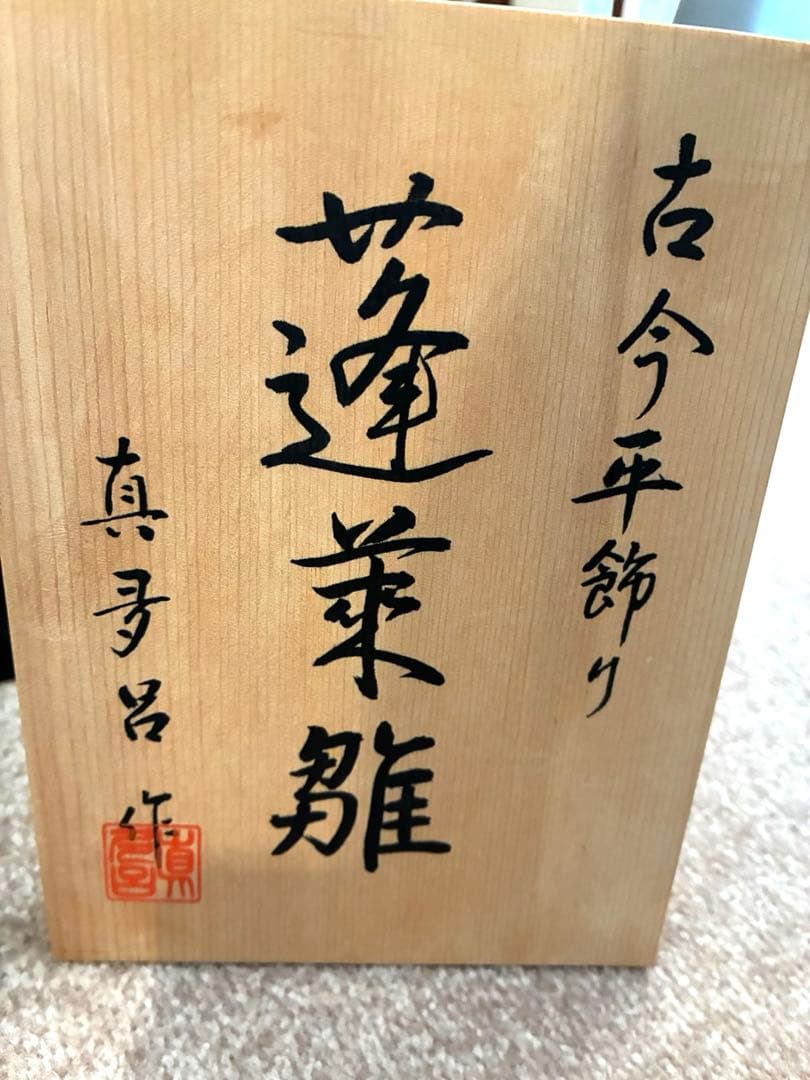 古今平飾り
蓬莱雛
真多呂作
真多呂